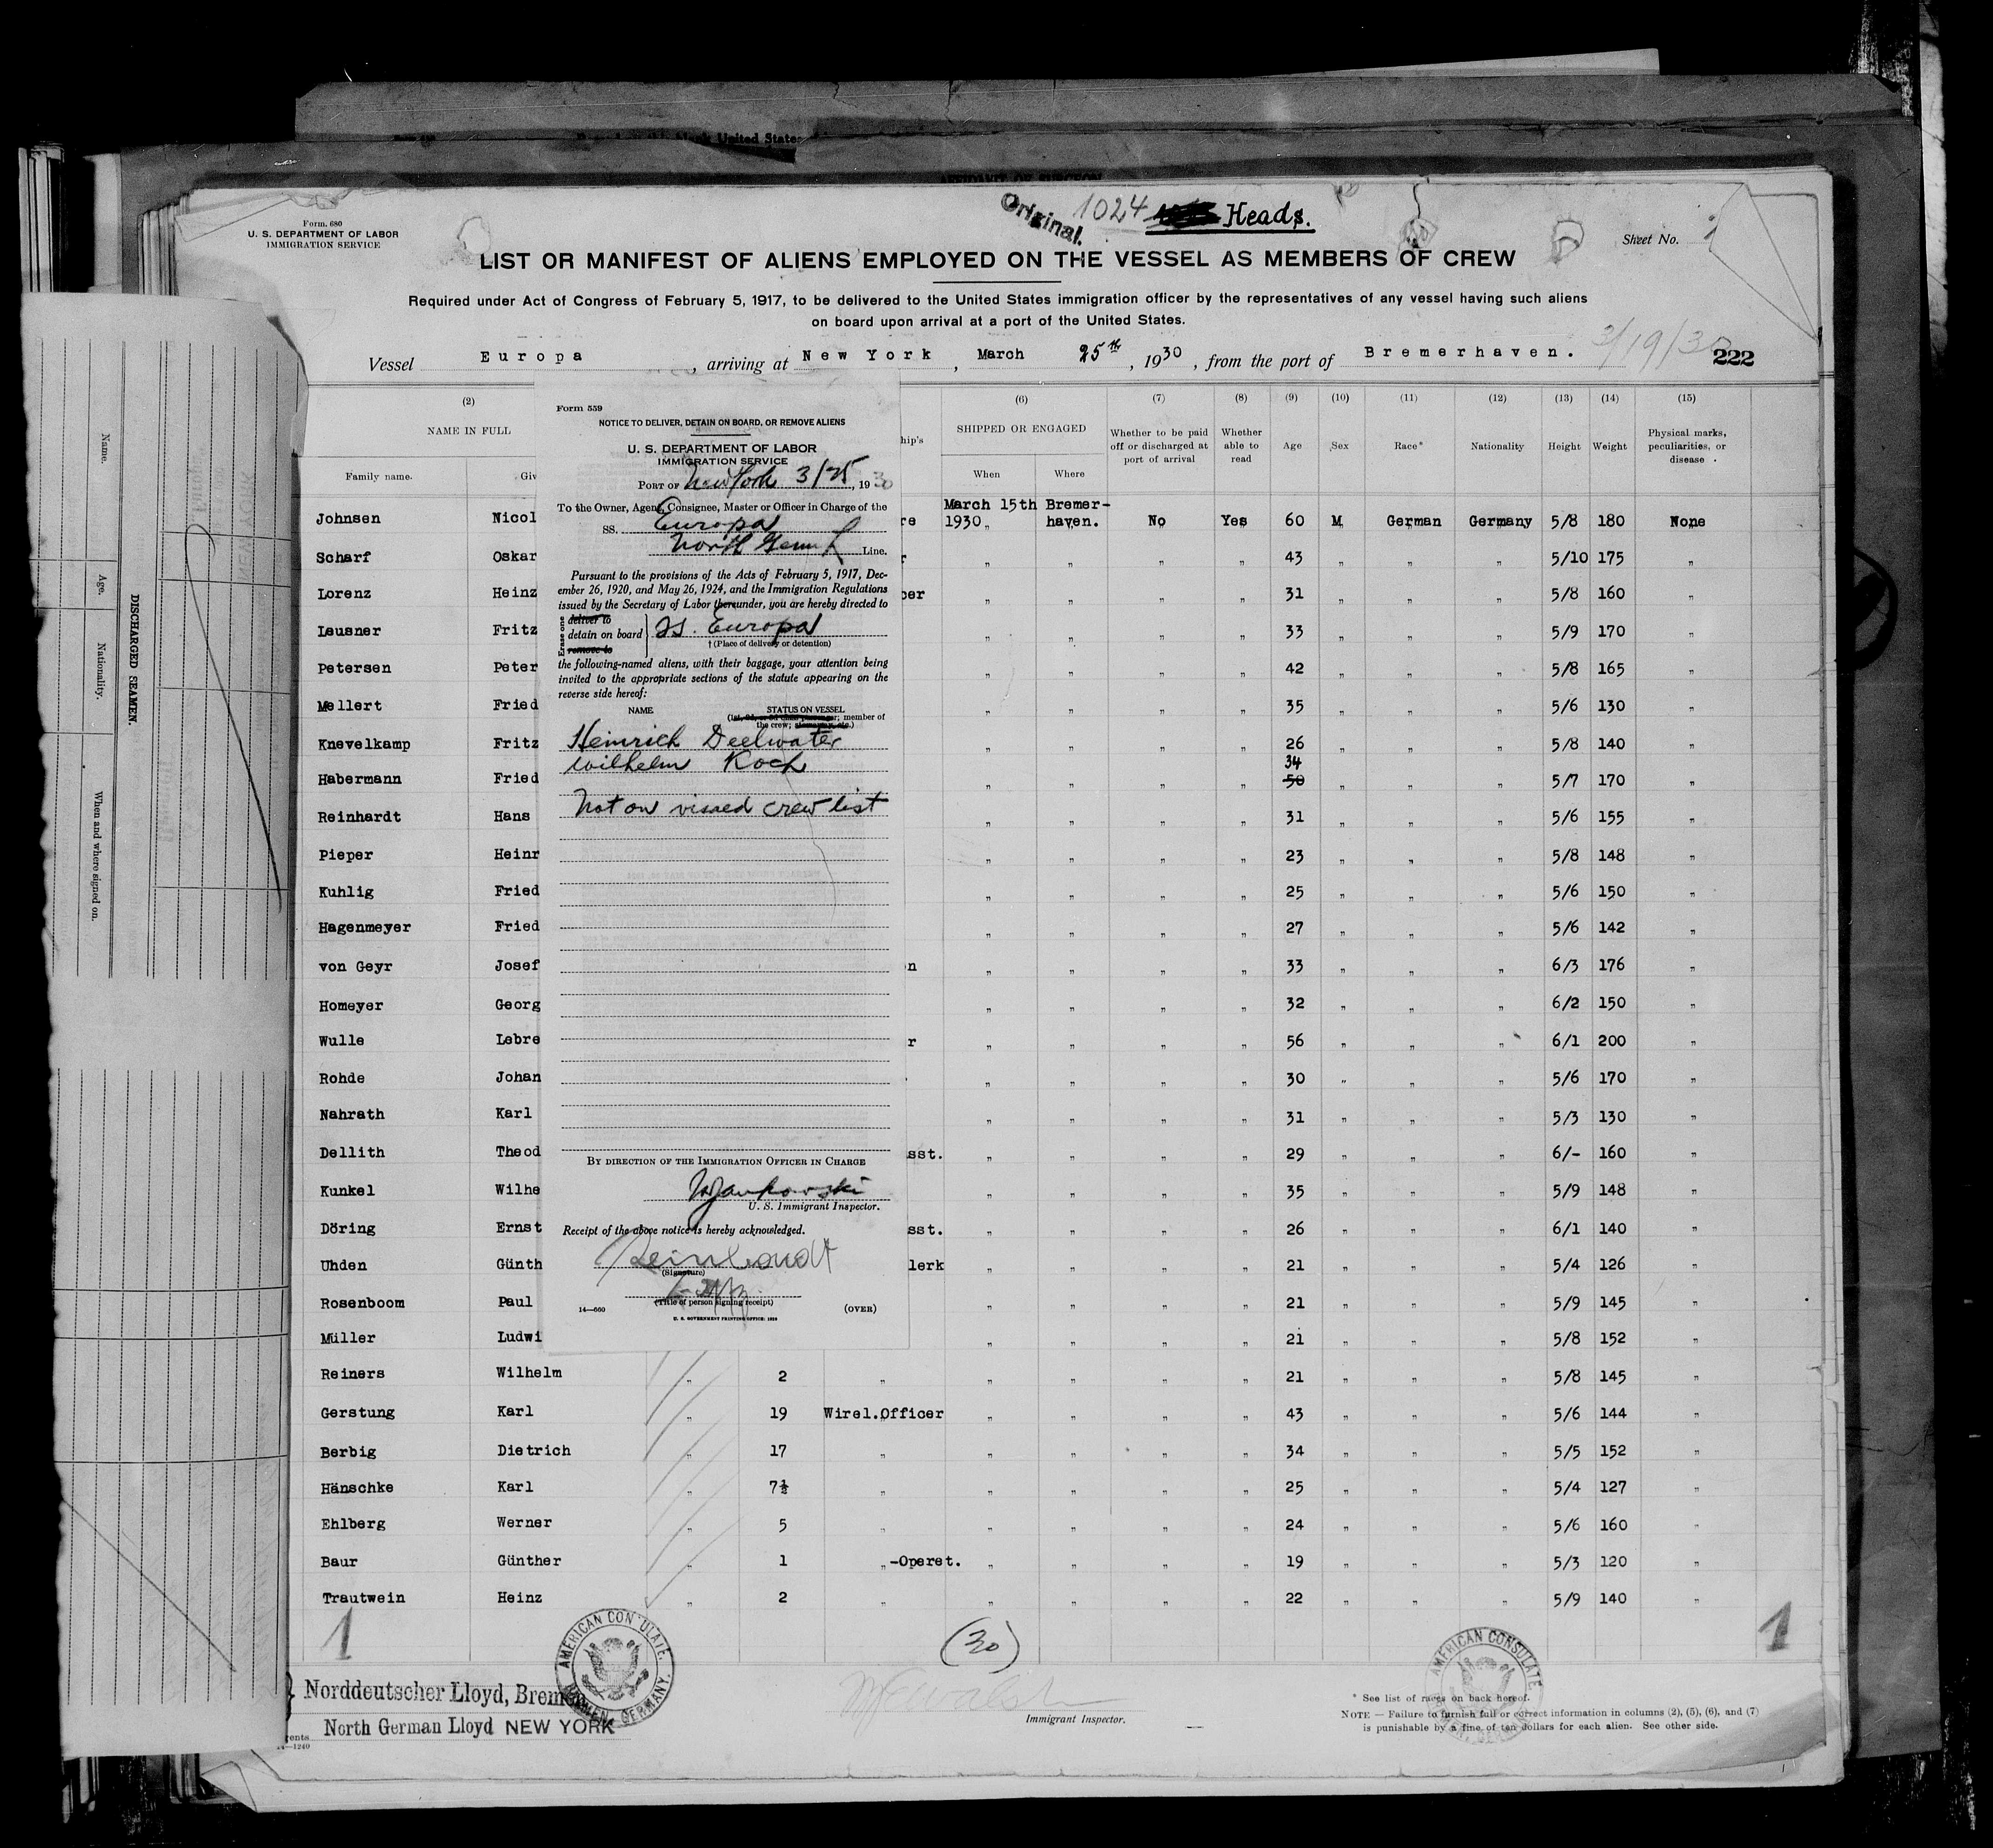 Original.
1024 Heads.
Form. 680
U. S. DEPARTMENT OF LABOR
IMMIGRATION SERVICE
Sheet No. 1
LIST OR MANIFEST OF ALIENS EMPLOYED ON THE VESSEL AS MEMBERS OF CREW
Required under Act of Congress of February 5, 1917, to be delivered to the United States immigration officer by the representatives of any vessel having such aliens
on board upon arrival at a port of the United States.
3/19/30
Vessel Europa, arriving at New York, March 25th, 1930, from the port of Bremerhaven. 222
(2) (6) (7) (8) (9) (10) (11) (12) (13) (14) (15)
NAME IN FULL
Family name.
SHIPPED OR ENGAGED
When Where
Whether to be paid off or discharged at port of arrival
Whether able to read
Age Sex Race* Nationality Height Weight
Physical marks, peculiarities, or disease
Johnsen Nicol March 15th 1930 Bremer-haven. No Yes 60 M German Germany 5/8 180 None
Scharf Oskar " " " " 43 " " " 5/10 175 "
Lorenz Heinz " " " " 31 " " " 5/8 160 "
Leusner Fritz " " " " 33 " " " 5/9 170 "
Petersen Peter " " " " 42 " " " 5/8 165 "
Mellert Fried " " " " 35 " " " 5/6 130 "
Knevelkamp Fritz " " " " 26 " " " 5/8 140 "
Habermann Fried " " " " 34 50 " " " 5/7 170 "
Reinhardt Hans " " " " 31 " " " 5/6 155 "
Pieper Heinr " " " " 23 " " " 5/8 148 "
Kuhlig Fried " " " " 25 " " " 5/6 150 "
Hagenmeyer Fried " " " " 27 " " " 5/6 142 "
von Geyr Josef " " " " 33 " " " 6/3 176 "
Homeyer Georg " " " " 32 " " " 6/2 150 "
Wulle Lebre " " " " 56 " " " 6/1 200 "
Rohde Johan " " " " 30 " " " 5/6 170 "
Nahrath Karl " " " " 31 " " " 5/3 130 "
Dellith Theod sst. " " " " 29 " " " 6/- 160 "
Kunkel Wilhe " " " " 35 " " " 5/9 148 "
Döring Ernst sst. " " " " 26 " " " 6/1 140 "
Uhden Günth lerk " " " " 21 " " " 5/4 126 "
Rosenboom Paul " " " " 21 " " " 5/9 145 "
Müller Ludwi " " " " 21 " " " 5/8 152 "
Reiners Wilhelm " 2 " " " " " 21 " " " 5/8 145 "
Gerstung Karl " 19 Wirel.Officer " " " " 43 " " " 5/6 144 "
Berbig Dietrich " 17 " " " " " 34 " " " 5/5 152 "
Hänschke Karl " 7½ " " " " " 25 " " " 5/4 127 "
Ehlberg Werner " 5 " " " " " 24 " " " 5/6 160 "
Baur Günther " 1 "-Operet. " " " " 19 " " " 5/3 120 "
Trautwein Heinz " 2 " " " " " 22 " " " 5/9 140 "
1 (30) 1
AMERICAN CONSULATE. BREMEN, GERMANY.
AMERICAN CONSULATE BREMEN, GERMANY
Norddeutscher Lloyd, Bremen
North German Lloyd NEW YORK
14—1240
Immigrant Inspector.
* See list of races on back hereof.
NOTE — Failure to furnish full or correct information in columns (2), (5), (6), and (7)
is punishable by a fine of ten dollars for each alien. See other side.
Form 559
NOTICE TO DELIVER, DETAIN ON BOARD, OR REMOVE ALIENS
U. S. DEPARTMENT OF LABOR
IMMIGRATION SERVICE
PORT OF New York 3/25, 1930
To the Owner, Agent, Consignee, Master or Officer in Charge of the
SS. Europa
North Germ L Line.
Pursuant to the provisions of the Acts of February 5, 1917, Dec-
ember 26, 1920, and May 26, 1924, and the Immigration Regulations
issued by the Secretary of Labor thereunder, you are hereby directed to
Erase one
deliver to
detain on board
remove to
SS. Europa
† (Place of delivery or detention)
the following-named aliens, with their baggage, your attention being
invited to the appropriate sections of the statute appearing on the
reverse side hereof:
NAME STATUS ON VESSEL
(1st, 2d, or 3d class passenger; member of
the crew; stowaway, etc.)
Heinrich Deelwater
Wilhelm Koch
Not on visaed crew list
BY DIRECTION OF THE IMMIGRATION OFFICER IN CHARGE
U. S. Immigrant Inspector.
Receipt of the above notice is hereby acknowledged.
(Signature)
(Title of person signing receipt)
14—660 (OVER)
U. S. GOVERNMENT PRINTING OFFICE: 1929
DISCHARGED SEAMEN.
Name. Age. Nationality. When and where signed on.